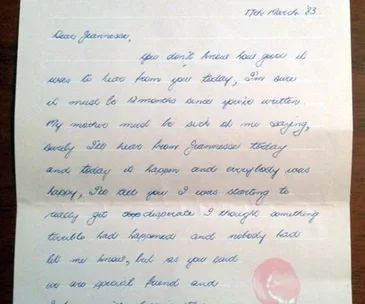 17th March '83
Dear Jeannessee,
You don't know how good it
was to hear from you today, I'm sure
it must be 12 months since you've written
My mother must be sick of me saying,
surely I'll hear from Jeannessee today
and today it happen and everybody was
happy, I'll tell you I was starting to
really get disparate I thought something
terrible had happened and nobody had
let me know, but as you said
we are special friend and